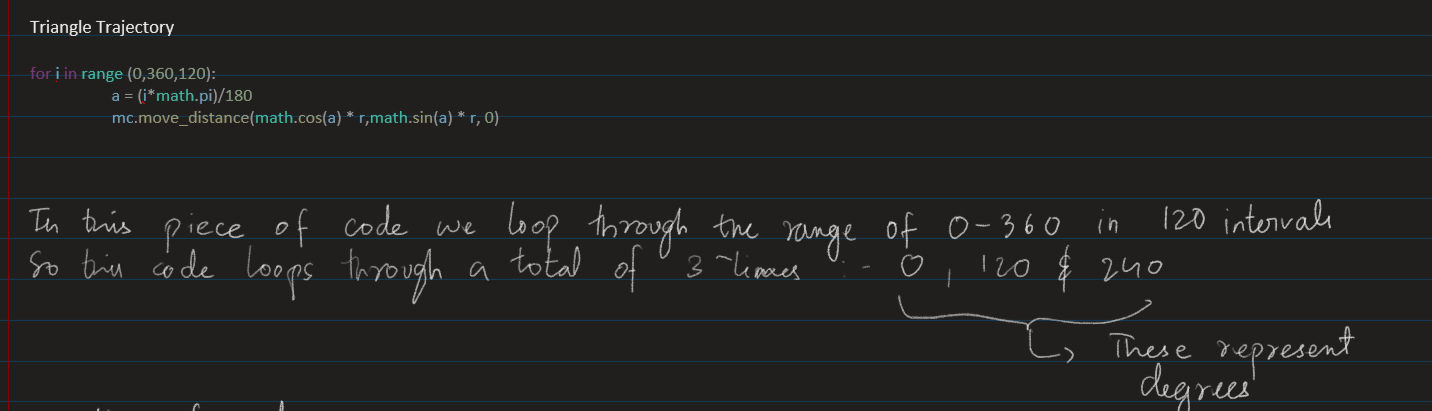 Triangle Trajectory
for i in range (0,360,120):
a = (i*math.pi)/180
mc.move_distance(math.cos(a) * r,math.sin(a) * r, 0)
In this piece of code we loop through the range of 0-360 in 120 intervals
So this code loops through a total of 3 times :- 0, 120 & 240
These represent
degrees